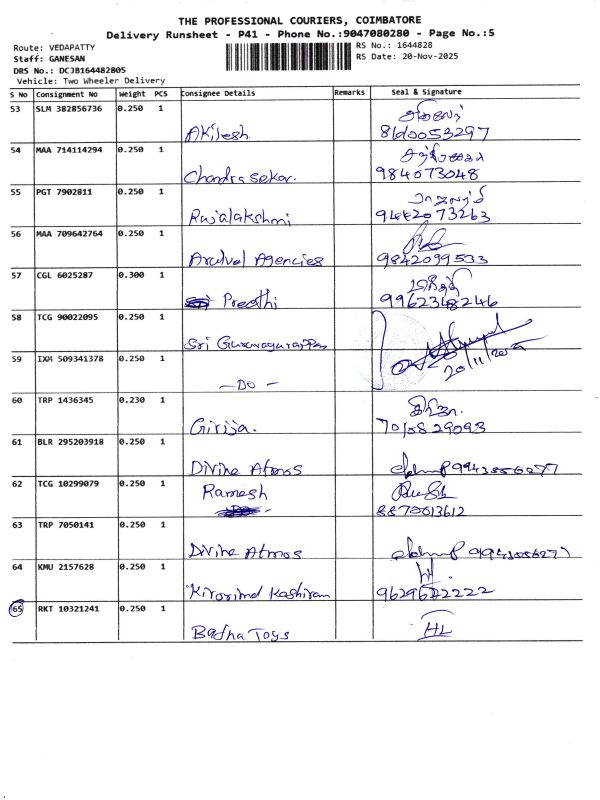 THE PROFESSIONAL COURIERS, COIMBATORE
Delivery Runsheet - P41 - Phone No.:9047080280 - Page No.:5
Route: VEDAPATTY
Staff: GANESAN
DRS No.: DCJB164482805
Vehicle: Two Wheeler Delivery
RS No.: 1644828
RS Date: 20-Nov-2025
S No Consignment No Weight PCS Consignee Details Remarks Seal & Signature
53 SLM 382856736 0.250 1 Akilesh
54 MAA 714114294 0.250 1 Chandrasekar. 984073048
55 PGT 7902811 0.250 1 Rajalakshmi
56 MAA 709642764 0.250 1 Agencies 9842099533
57 CGL 6025287 0.300 1 Preethi 9962348246
58 TCG 90022095 0.250 1 Sri
59 IXM 509341378 0.250 1 - DO - 20/11/2025
60 TRP 1436345 0.230 1 Girija.
61 BLR 295203918 0.250 1 Divine Atmos 9943556277
62 TCG 10299079 0.250 1 Ramesh 8870613612
63 TRP 7050141 0.250 1 Divine Atmos
64 KMU 2157628 0.250 1
65 RKT 10321241 0.250 1 Toys